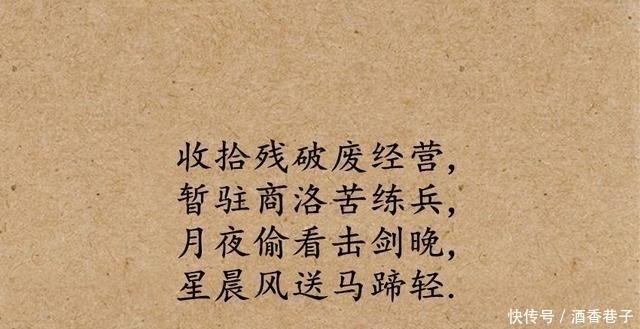 收拾残破废经营,
暂驻商洛苦练兵,
月夜偷看击剑晚,
星晨风送马蹄轻.
快传号/酒香巷子